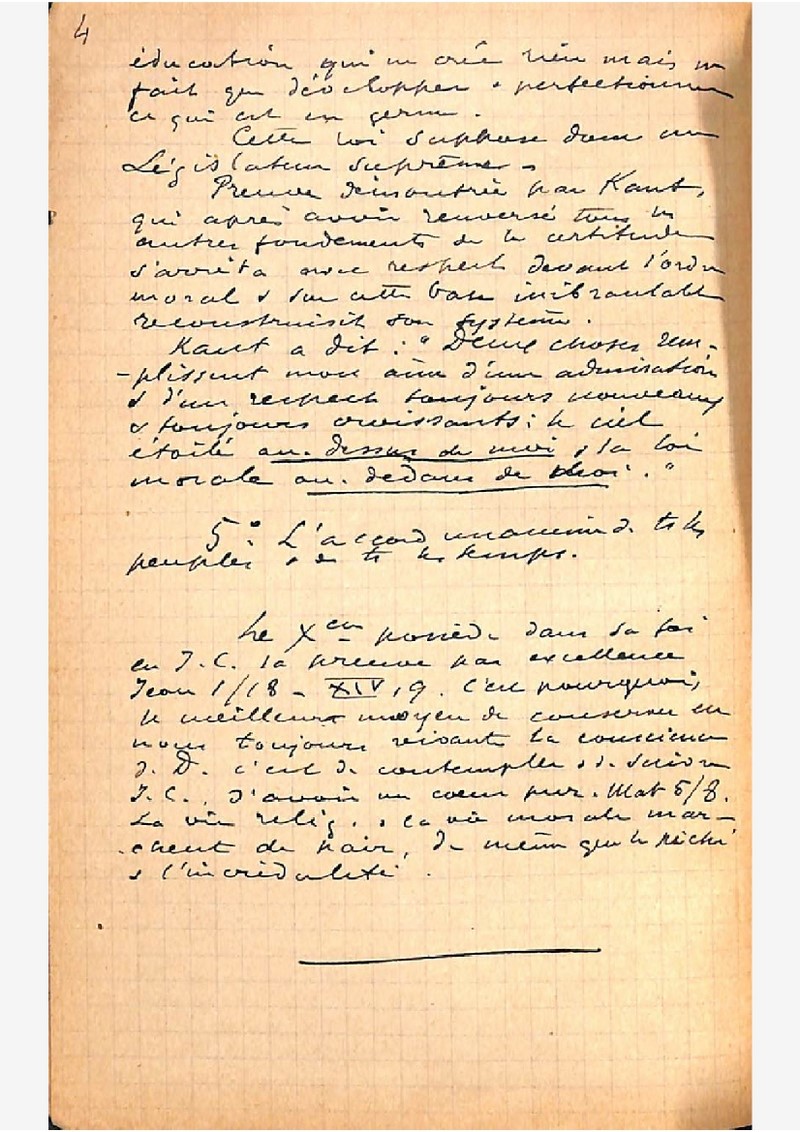 4
éducation qui ne crée rien mais ne
fait que développer & perfectionner
ce qui est en germe.
Cette loi suppose donc un
Législateur suprême.
Preuve démontrée par Kant,
qui après avoir renversé tous les
autres fondements de la certitude
s'arrêta avec respect devant l'ordre
moral & sur cette base inébranlable
reconstruisit son système.
Kant a dit : "Deux choses rem-
-plissent mon âme d'une admiration
& d'un respect toujours nouveaux
& toujours croissants : le ciel
étoilé au-dessus de moi, & la loi
morale au-dedans de moi."
5° L'accord unanime de ts les
peuples & de ts les temps.
Le Xen possède dans sa foi
en J.C. la preuve par excellence
Jean 1/18 - XIV, 9. C'est pourquoi,
le meilleur moyen de conserver en
nous toujours vivante la conscience
d. D. c'est de contempler & de suivre
J.C., d'avoir un cœur pur. Mat 5/8.
La vie relig. & la vie morale mar-
chent de pair, de même que le péché
& l'incrédulité.